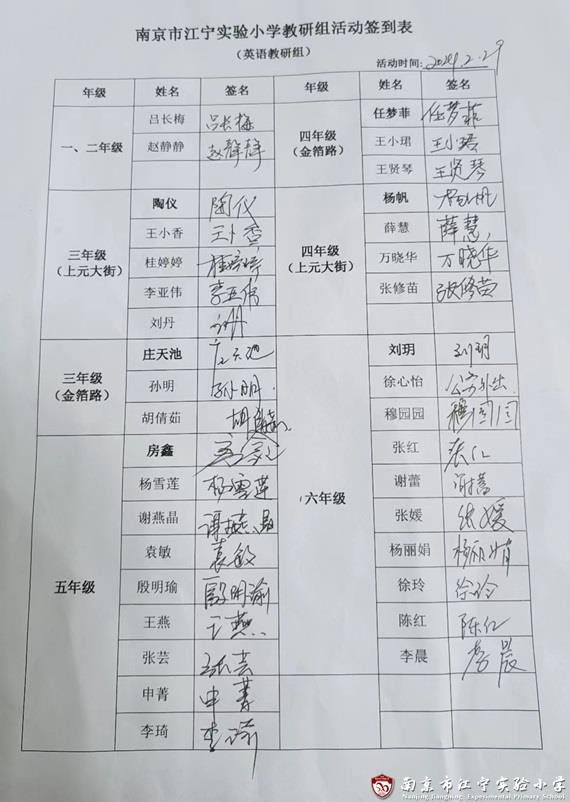 南京市江宁实验小学教研组活动签到表
(英语教研组)
活动时间: 2024.2.29
年级 姓名 签名 年级 姓名 签名
一、二年级 吕长梅 吕长梅
赵静静 赵静静
四年级(金箔路) 任梦菲 任梦菲
王小珺 王小珺
王贤琴 王贤琴
三年级(上元大街) 陶仪 陶仪
王小香 王小香
桂婷婷 桂婷婷
李亚伟 李亚伟
刘丹 刘丹
四年级(上元大街) 杨帆 杨帆
薛慧 薛慧
万晓华 万晓华
张修苗 张修苗
三年级(金箔路) 庄天池 庄天池
孙明 孙明
胡倩茹 胡倩茹
五年级 房鑫 房鑫
杨雪莲 杨雪莲
谢燕晶 谢燕晶
袁敏 袁敏
殷明瑜 殷明瑜
王燕 王燕
张芸 张芸
申菁 申菁
李琦
六年级 刘玥 刘玥
徐心怡 公务外出
穆园园 穆园园
张红 张红
谢蕾 谢蕾
张媛 张媛
杨丽娟 杨丽娟
徐玲 徐玲
陈红 陈红
李晨 李晨
南京市江宁实验小学
Nanjing Jiangning Experimental Primary School